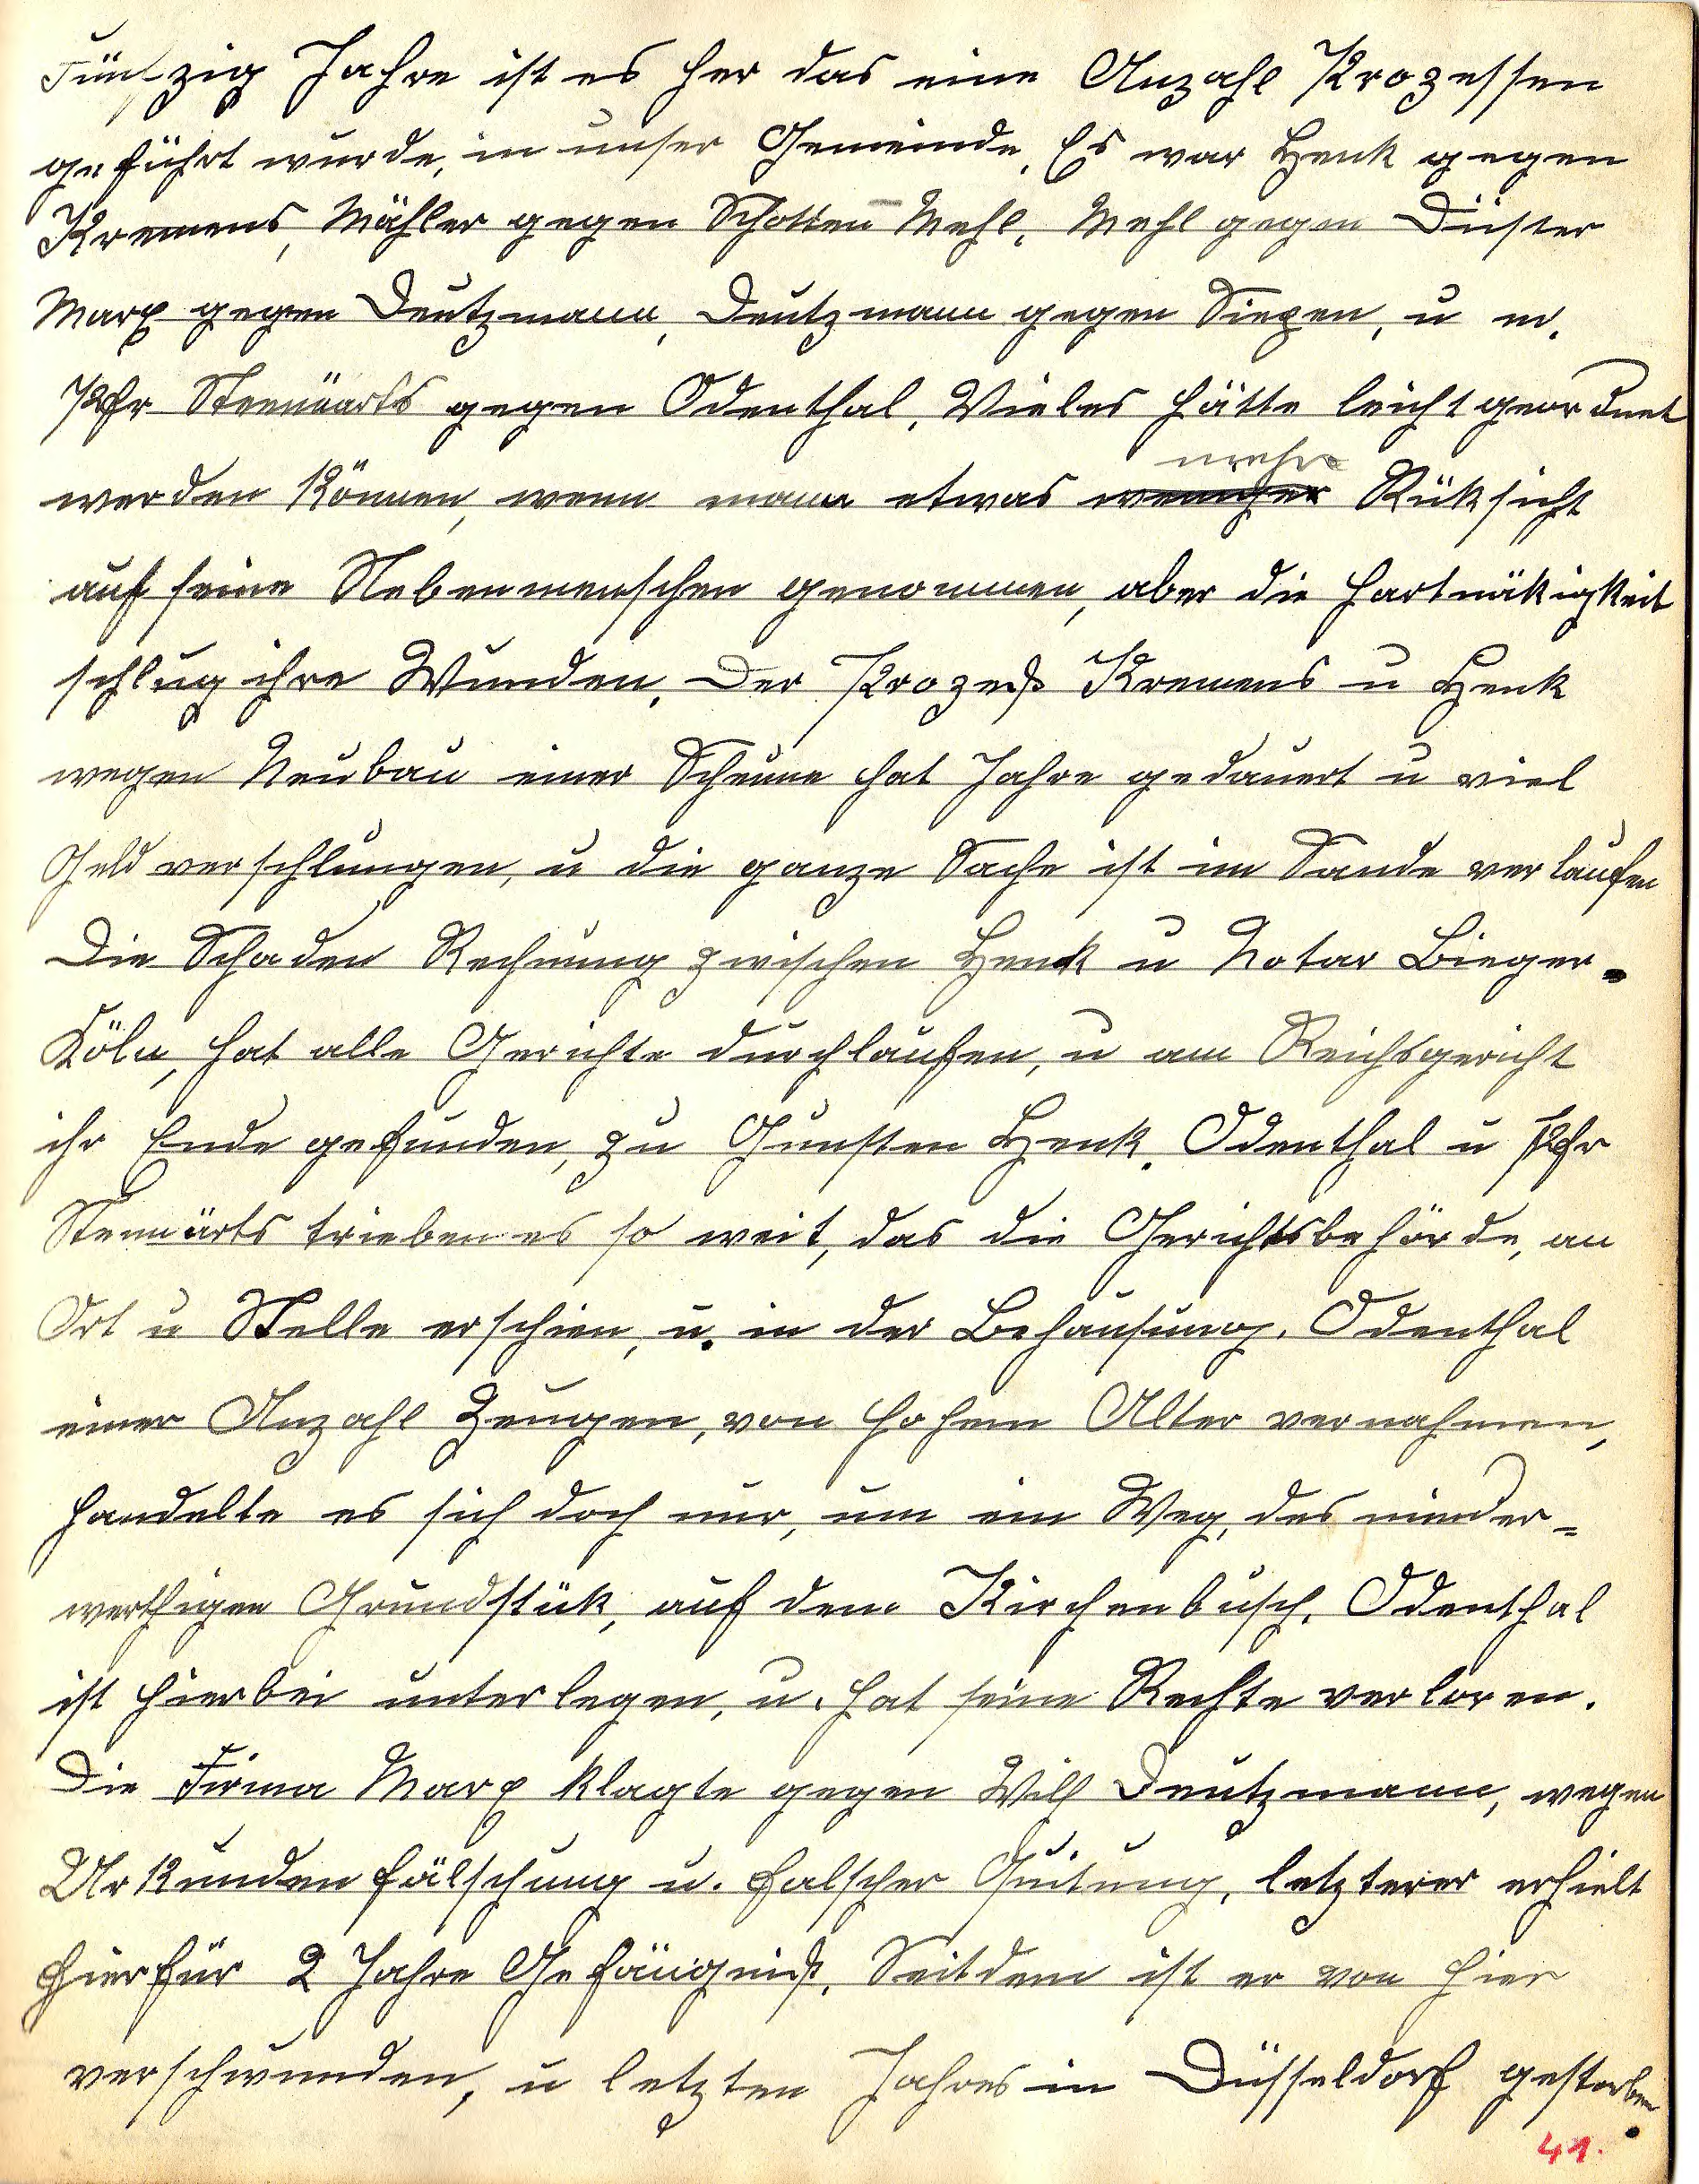 Fünfzig Jahre ist es her das eine Anzahl Prozessen
geführt wurde, in unser Gemeinde. Es war Henk gegen
Kremens, Mähler gegen Schotten Mehl, Mehl gegen Düster
Marx gegen Deutzmann, Deutzmann gegen Siegen, u m.
Pfr Stennärts gegen Odenthal, Vieles hätte leicht geordnet
werden können, wenn mann etwas weniger mehr Rüksicht
auf seine Nebenmenschen genommen, aber die Hartnäkigkeit
schlug ihre Wunden. Der Prozeß Kremens u Henk
wegen Neubau einer Scheune hat Jahre gedauert u viel
Geld verschlungen, u die ganze Sache ist im Sande verlaufen
Die Schaden Rechnung zwischen Henk u Notar Bieger-
Köln, hat alle Gerichte durchlaufen, u am Reichsgericht
ihr Ende gefunden, zu Gunsten Henk. Odenthal u Pfr
Stennärts trieben es so weit, das die Gerichtsbehörde, an
Ort u Stelle erschien, u. in der Behausung. Odenthal
einer Anzahl Zeugen, von hohem Alter vernahmen,
handelte es sich doch nur, um ein Weg, des minder-
werthigen Grundstük, auf dem Kirchenbusch. Odenthal
ist hierbei unterlegen, u. hat seine Rechte verloren.
Die Firma Marx klagte gegen Wilh Deutzmann, wegen
Urkundenfälschung u. falscher Quitung, letzterer erhielt
hierfür 2 Jahre Gefängniß. Seitdem ist er von hier
verschwunden, u letzten Jahres in Düsseldorf gestorben.
41.